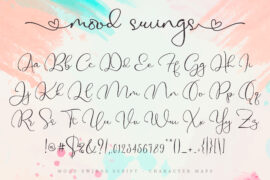 mood swings
Aa Bb Cc Dd Ee Ff Gg Hh Ii
Jj Kk Ll Mm Nn Oo Pp Qq Rr
Ss Tt Uu Vv Ww Xx Yy Zz
MOOD SWINGS SCRIPT - CHARACTER MAPS